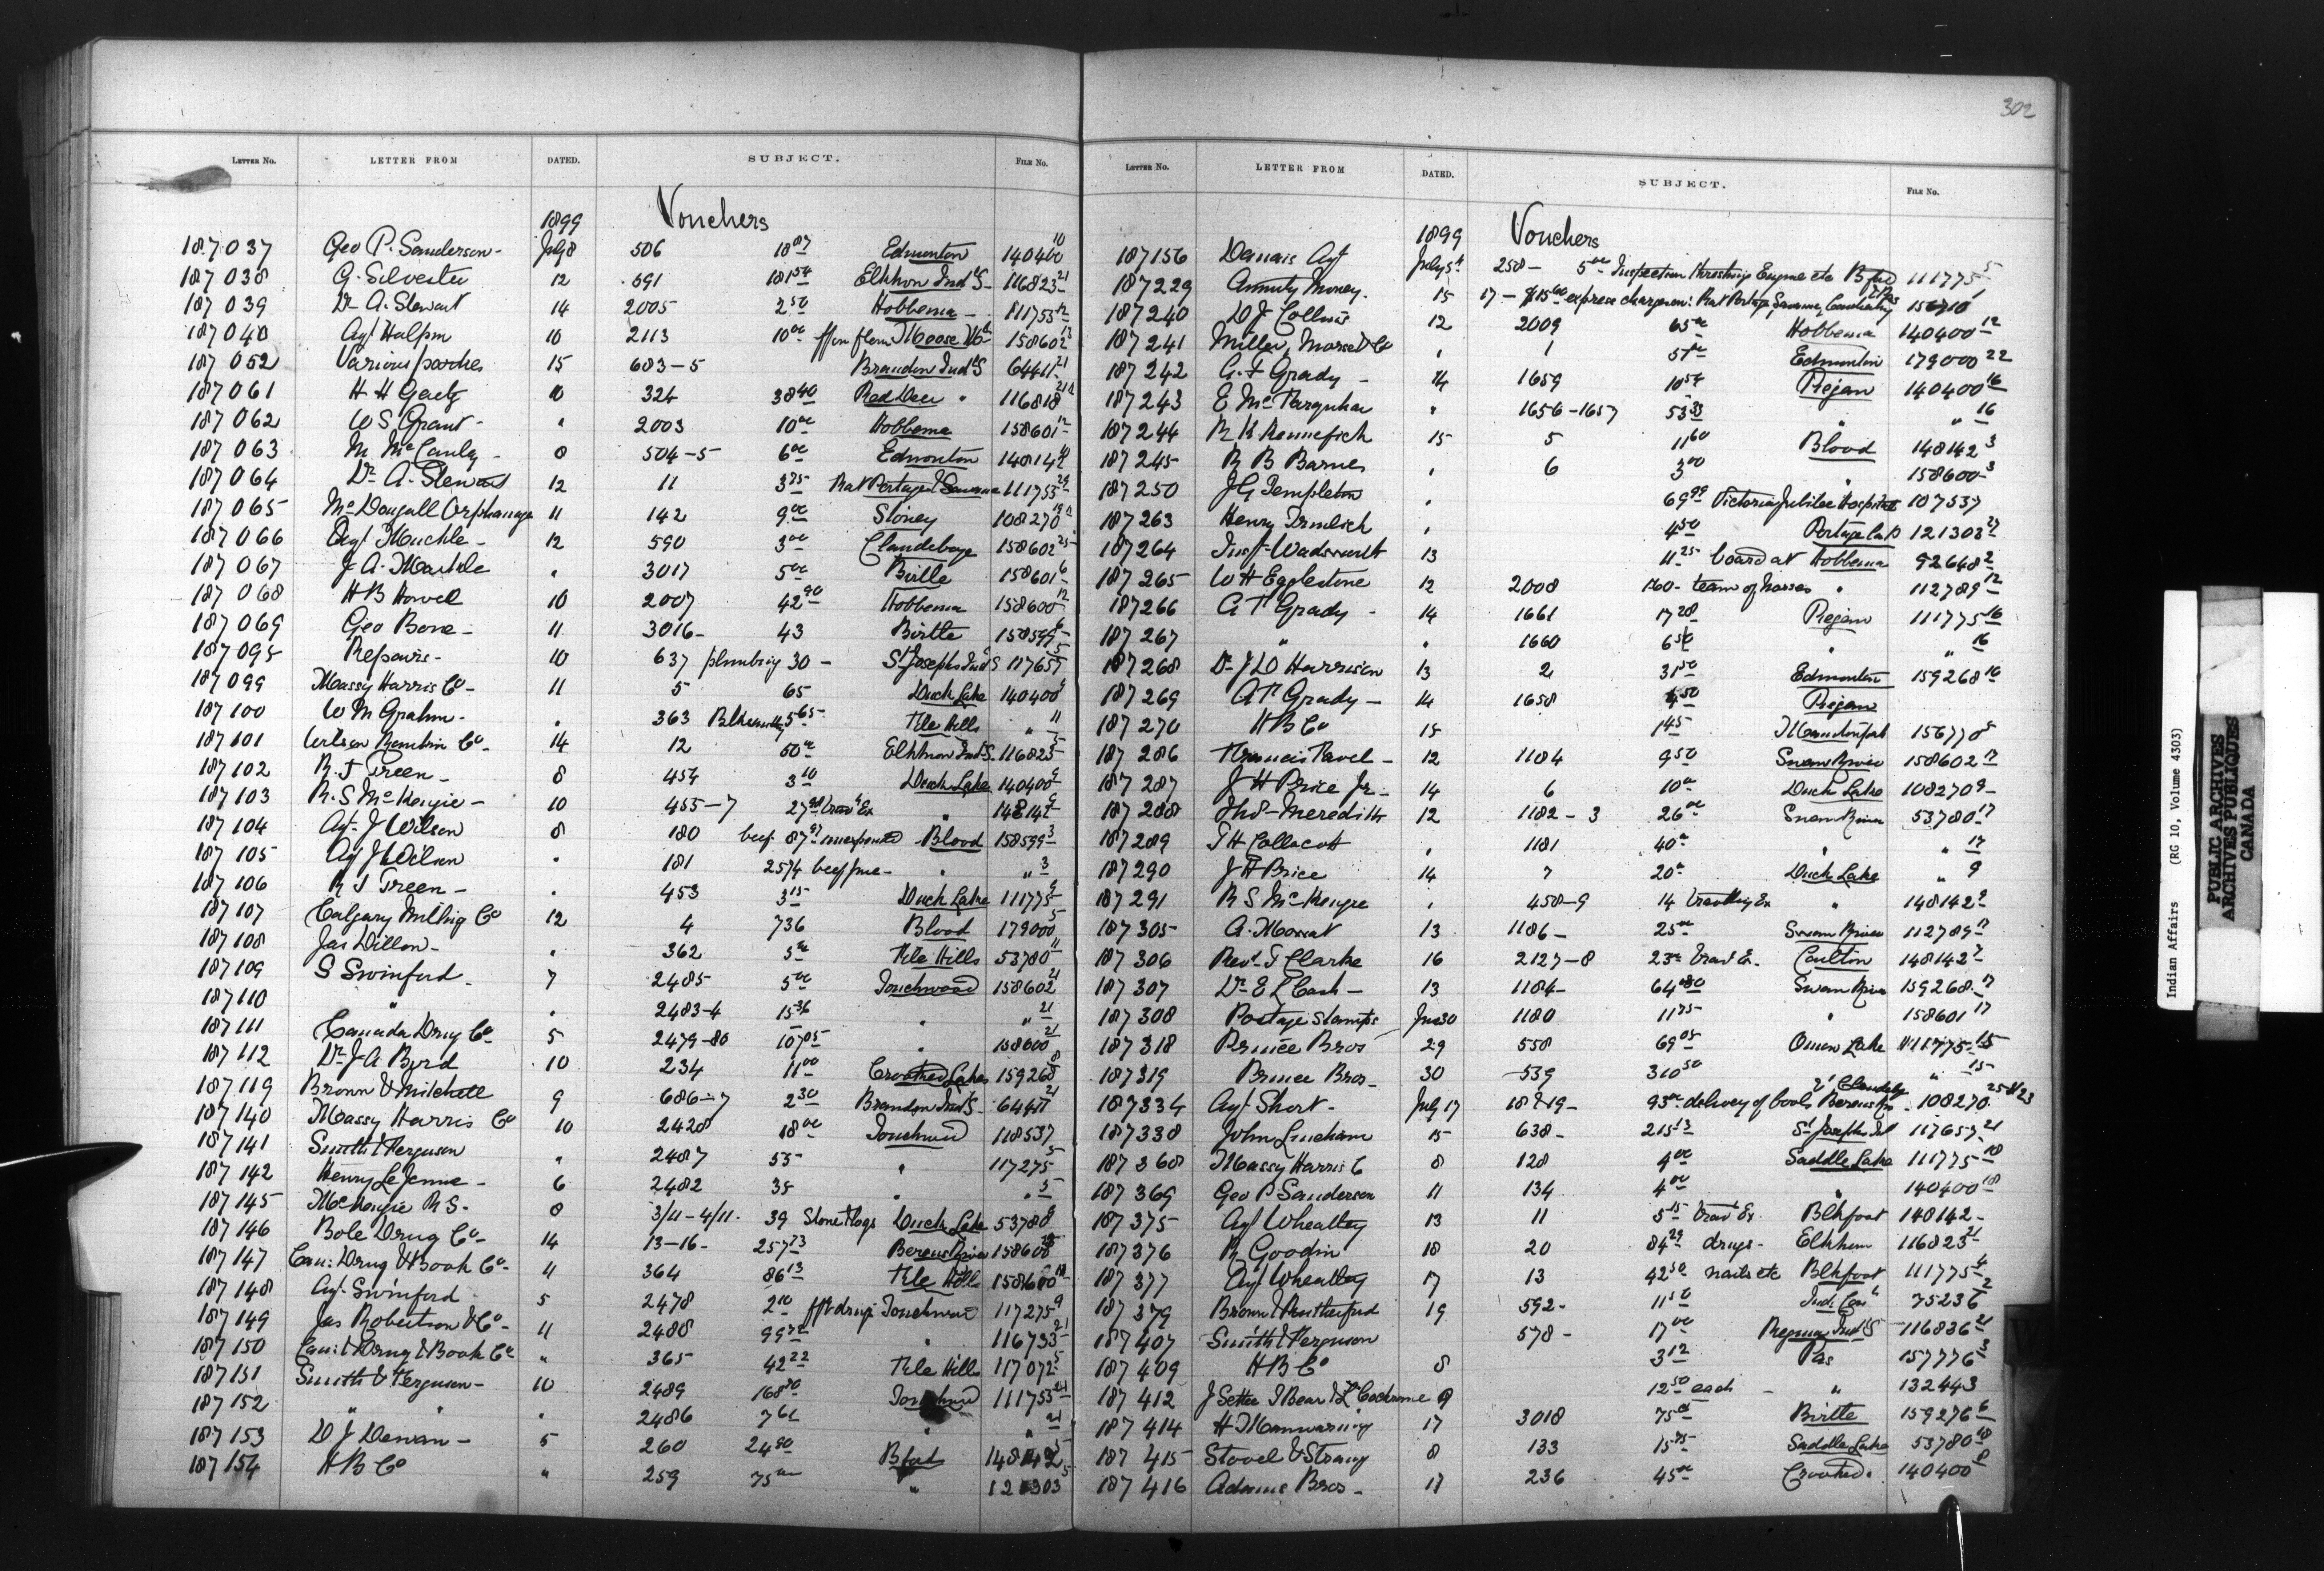 302
LETTER No. LETTER FROM DATED. SUBJECT. FILE No.
1899 Vouchers
187037 Geo P. Sanderson - July 8 506 18 07 Edmonton 140400 10
187038 G. Silvester 12 691 181 54 Elkhorn Ind S - 116823 21
187039 Dr A. Stewart 14 2005 2 50 Hobbema - 111755 12
187040 Agt Halpin 10 2113 10 00 Moose Mt 158602 13
187052 Various parties 15 683-5 Brandon Ind S 64411 21
187061 H H Gaetz 10 324 38 40 Red Deer " 116818 21
187062 W S Grant - " 2003 10 00 Hobbema 158601 12
187063 M McCauley - 8 504-5 6 00 Edmonton 148142
187064 Dr A. Stewart 12 11 3 75 Rat Portage & Savanne 111755 24
187065 McDougall Orphanage 11 142 9 00 Stoney 108270
187066 Agt Muckle - 12 590 3 00 Clandeboye 158602 25
187067 J A. Markle " 3017 5 00 Birtle 158601 6
187068 H B Howell 10 2007 42 90 Hobbema 158600 12
187069 Geo Bone - 11 3016 - 43 Birtle 158599 6
187095 Repairs - 10 637 plumbing 30 - St Josephs Ind S 117657
187099 Massy Harris Co - 11 5 65 Duck Lake 140400 9
187100 W M Graham - " 363 5 65 File Hills " 11
187101 Co - 14 12 60 00 Elkhorn Ind S. 116823
187102 R. J Green - 8 454 3 10 Duck Lake 140400 9
187103 R. S McKenzie - 10 455-7 Trav Ex " 148142 9
187104 Agt J Wilson 8 180 beef 87 Blood 158599 3
187105 Agt J Wilson " 181 2574 beef " " 3
187106 R J Green - " 453 3 15 Duck Lake 111775 9
187107 Calgary Milling Co 12 4 736 Blood 179000
187108 Jas Dillon - " 362 5 00 File Hills 53780 11
187109 S Swinford - 7 2485 5 00 Touchwood 158602 21
187110 " " 2483-4 15 36 " " 21
187111 Canada Drug Co 5 2479-80 107 05 " 158600 21
187112 Dr J A Byrd 10 234 11 00 Crooked Lakes 159268 8
187119 Brown & Mitchell 9 686-7 2 30 Brandon Ind S - 64411 21
187140 Massy Harris Co 10 2420 18 00 Touchwood 118537
187141 Smith & Ferguson " 2487 55 - " 117275 5
187142 Henry LeJeune - 6 2482 35 " " 5
187145 McKenzie R S. - 8 3/11-4/11. 39 Stone & logs Duck Lake 53780 9
187146 Bole Drug Co - 14 13-16 - 257 73 Berens River 158600
187147 Can: Drug & Book Co - 11 364 86 13 File Hills 158600
187148 Agt. Swinford 5 2478 2 10 drugs Touchwood 117275
187149 Jas Robertson & Co - 11 2488 99 72 " 116733 21
187150 Can: Drug & Book Co " 365 42 22 File Hills 117072 5
187151 Smith & Ferguson - 10 2489 168 80 Touchwood 111755 21
187152 " " " 2486 7 61 " " 21
187153 D J Dewan - 5 260 24 80 Bford 148142 5
187154 H B Co " 259 75 00 " 121303 5
LETTER No. LETTER FROM DATED. SUBJECT. FILE No.
1899 Vouchers
187156 Demais Agt July 5th 258 - 5 00 Inspection threshing Engine etc Bford 111775 5
187229 Annuity Money. 15 17 - $15 60 express charges on: Rat Portage, Savanne, 156710
187240 D J Collins 12 2009 65 00 Hobbema 140400 12
187241 Miller, Morse & Co " 1 51 00 Edmonton 179000 22
187242 G. F Grady - 14 1659 10 54 Piegan 140400 16
187243 E McFarquhar " 1656-1657 53 33 " " 16
187244 R K Kennefick 15 5 11 60 Blood 148142 3
187245 R B Barnes " 6 3 00 " 158600 3
187250 J G Templeton " 69 99 Victoria Jubilee Hospital 107537
187263 Henry Irmlich " 4 50 Portage la P 121303 27
187264 Insp - Wadsworth 13 11 25 board at Hobbema 92648 2
187265 W H Egglestone 12 2008 160 - team of horses " 112789 12
187266 G T Grady - 14 1661 17 28 Piegan 111775 16
187267 " " 1660 6 50 " " 16
187268 Dr J D Harrison 13 2 31 50 Edmonton 159268 10
187269 G T Grady - 14 1658 4 50 Piegan
187270 H B Co 15 1 45 156770 5
187286 Francis Favel - 12 1184 9 50 Swan River 158602 17
187287 J H Price Jr. - 14 6 10 00 Duck Lake 108270 9 -
187288 Thos - Meredith 12 1182-3 26 00 Swan River 53780 17
187289 T H Collacott " 1181 40 00 " " 17
187290 J H Price 14 7 20 00 Duck Lake " 9
187291 R S McKenzie " 458-9 14 travelling Ex " 148142 9
187305 A. Mowat 13 1186 - 25 00 Swan River 112789 17
187306 Revd. J Clarke 16 2127-8 23 00 Trav Ex. Carlton 148142 7
187307 Dr E L Cash - 13 1184 - 64 80 Swan River 159268 17
187308 Postage stamps Jun 30 1180 11 75 " 158601 17
187318 Prince Bros 29 558 69 05 Onion Lake 111775 15
187319 Prince Bros - 30 539 310 50 " " 15 -
187334 Agt Short - July 17 18 & 19 - 93 00 delivery of goods Berens Riv & Clandeby 108270 25 & 23
187338 John Lineham 15 638 - 215 13 St Josephs Ind 117657 21
187368 Massy Harris C 8 128 9 00 Saddle Lake 111775 18
187369 Geo P Sanderson 11 134 4 00 " 140400 18
187375 Agt Wheatley 13 11 5 15 Trav Ex. Blkfoot 148142 -
187376 R Goodin 18 20 84 29 drugs - Elkhorn 116823 21
187377 Agt Wheatley 17 13 42 50 nails etc Blkfoot 111775 4
187379 Brown & Rutherford 19 592 - 11 50 75236 2
187407 Smith & Ferguson 578 - 17 00 Regina Ind S 116836 21
187409 H B Co 8 3 12 Pas 157776 3
187412 J Settee J Bear & L Cochrane 9 12 50 each - " 132443
187414 H Manwaring 17 3018 75 00 Birtle 159276 6
187415 Stovel & Strang 8 133 15 75 Saddle Lake 53780 18
187416 Adams Bros - 17 236 45 00 Crooked. 140400 8
Indian Affairs (RG 10, Volume 4303)
PUBLIC ARCHIVES
ARCHIVES PUBLIQUES
CANADA